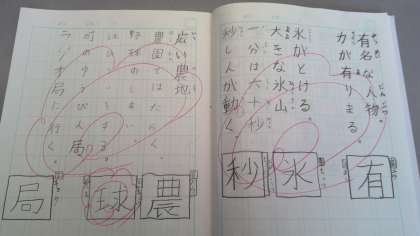 有名な人物。
力が有りまる。
氷がとける。
大きな氷山
一分は六十秒
秒しんが動く
有
氷
秒
広い農地
農園ではたらく。
町のゆうびん局。
ラジオ局に行く。
農
球
局